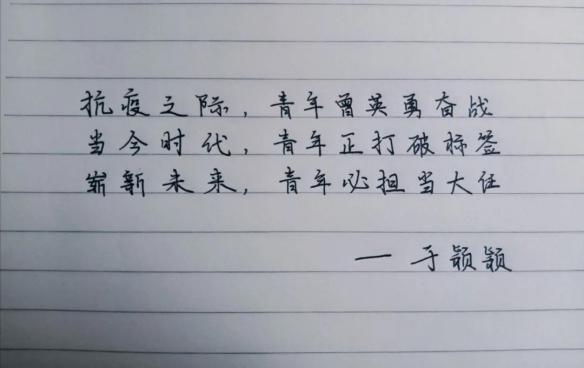 抗疫之际，青年曾英勇奋战
当今时代，青年正打破标签
崭新未来，青年必担当大任
— 于颖颖